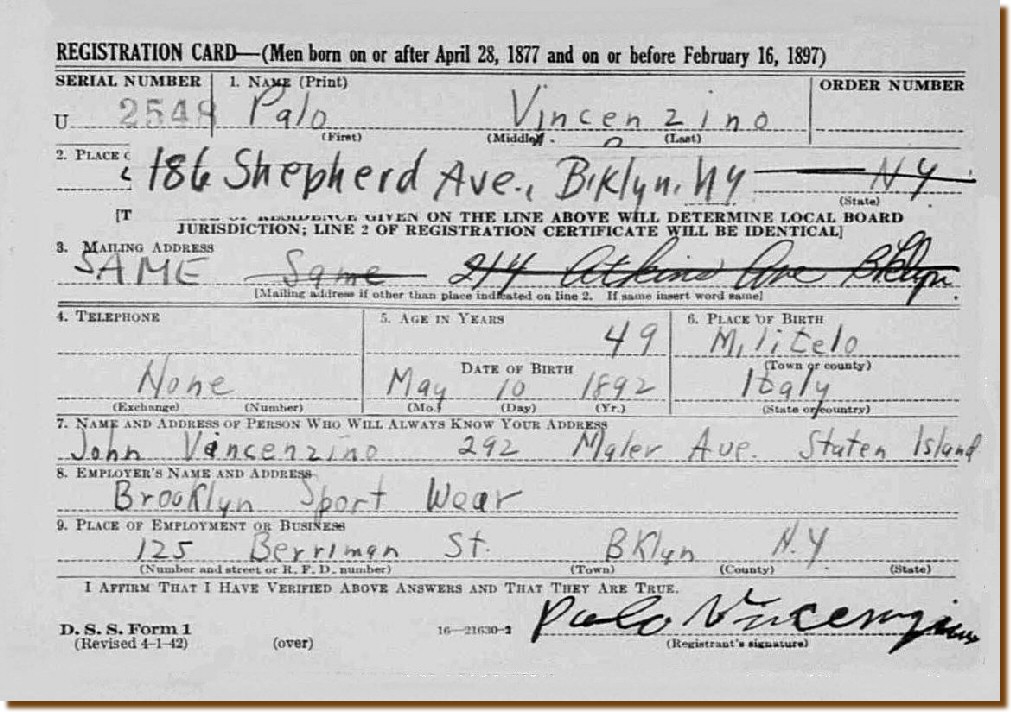 REGISTRATION CARD—(Men born on or after April 28, 1877 and on or before February 16, 1897)
SERIAL NUMBER 1. NAME (Print) ORDER NUMBER
U 2548 Palo Vincenzino
(First) (Middle) (Last)
2. PLACE
186 Shepherd Ave., Bklyn, NY NY
(State)
[T OF RESIDENCE GIVEN ON THE LINE ABOVE WILL DETERMINE LOCAL BOARD
JURISDICTION; LINE 2 OF REGISTRATION CERTIFICATE WILL BE IDENTICAL]
3. MAILING ADDRESS
SAME Same 214 Atkins Ave Bklyn
[Mailing address if other than place indicated on line 2. If same insert word same]
4. TELEPHONE 5. AGE IN YEARS 6. PLACE OF BIRTH
49 Militelo
DATE OF BIRTH (Town or county)
None May 10 1892 Italy
(Exchange) (Number) (Mo.) (Day) (Yr.) (State or country)
7. NAME AND ADDRESS OF PERSON WHO WILL ALWAYS KNOW YOUR ADDRESS
John Vancenzino 292 Maler Ave. Staten Island
8. EMPLOYER'S NAME AND ADDRESS
Brooklyn Sport Wear
9. PLACE OF EMPLOYMENT OR BUSINESS
125 Berriman St. BKlyn N.Y
(Number and street or R. F. D. number) (Town) (County) (State)
I AFFIRM THAT I HAVE VERIFIED ABOVE ANSWERS AND THAT THEY ARE TRUE.
D. S. S. Form 1
(Revised 4-1-42) (over) 16—21630-2 Palo Vincenzino
(Registrant's signature)